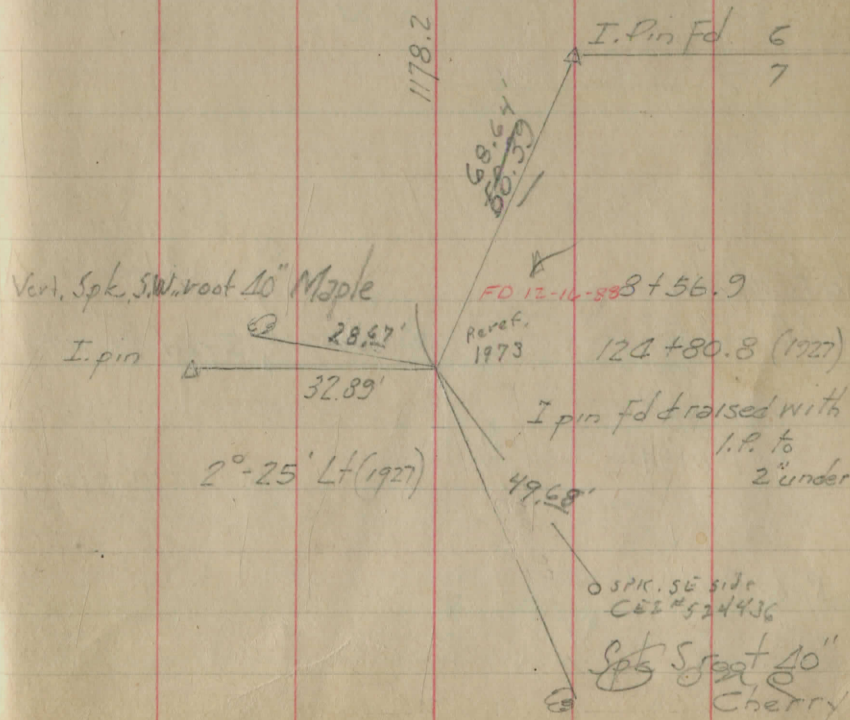 1178.2
I. Pin Fd 6
7
68.64'
60.39
Vert. Spk. S.W. root 40" Maple
FD 12-16-88
8+56.9
28.67'
Reref.
1973
I. pin
124+80.8 (1927)
32.89'
I pin Fd & raised with
I.P. to
2" under
2°-25' Lt (1927)
49.68'
SPK. SE side
CEI # 524436
Spk S root 40"
Cherry